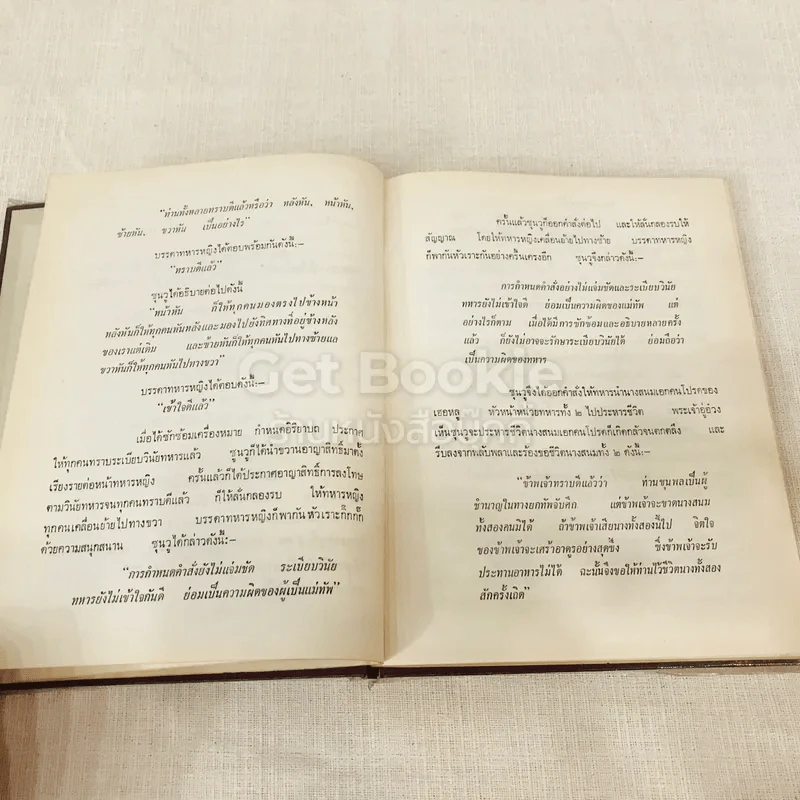 “ท่านทั้งหลายทราบดีแล้วหรือว่า หลังหัน, หน้าหัน,
ซ้ายหัน, ขวาหัน เป็นอย่างไร”
บรรดาทหารหญิงได้ตอบพร้อมกันดังนี้:-
“ทราบดีแล้ว”
ซุนวูได้อธิบายต่อไปดังนี้
“หน้าหัน ก็ให้ทุกคนมองตรงไปข้างหน้า
หลังหันก็ให้ทุกคนหันหลังและมองไปยังทิศทางที่อยู่ข้างหลัง
ของเราแต่เดิม และซ้ายหันก็ให้ทุกคนหันไปทางซ้ายแล
ขวาหันก็ให้ทุกคนหันไปทางขวา”
บรรดาทหารหญิงได้ตอบดังนี้:-
“เข้าใจดีแล้ว”
เมื่อได้ซักซ้อมเครื่องหมาย กำหนดอิริยาบถ ประกาศ
ให้ทุกคนทราบระเบียบวินัยทหารแล้ว ซุนวูก็ได้นำขวานอาญาสิทธิ์มาตั้ง
เรียงรายต่อหน้าทหารหญิง ครั้นแล้วก็ได้ประกาศอาญาสิทธิ์การลงโทษ
ตามวินัยทหารจนทุกคนทราบดีแล้ว ก็ให้ลั่นกลองรบ ให้ทหารหญิง
ทุกคนเคลื่อนย้ายไปทางขวา บรรดาทหารหญิงก็พากันหัวเราะกิ๊กกั๊ก
ด้วยความสนุกสนาน ซุนวูได้กล่าวดังนี้:-
“การกำหนดคำสั่งยังไม่แจ่มชัด ระเบียบวินัย
ทหารยังไม่เข้าใจกันดี ย่อมเป็นความผิดของผู้เป็นแม่ทัพ”
ครั้นแล้วซุนวูก็ออกคำสั่งต่อไป และให้ลั่นกลองรบให้
สัญญาณ โดยให้ทหารหญิงเคลื่อนย้ายไปทางซ้าย บรรดาทหารหญิง
ก็พากันหัวเราะกันอย่างครื้นเครงอีก ซุนวูจึงกล่าวดังนี้:-
การกำหนดคำสั่งอย่างไม่แจ่มชัดและระเบียบวินัย
ทหารยังไม่เข้าใจดี ย่อมเป็นความผิดของแม่ทัพ แต่
อย่างไรก็ตาม เมื่อได้มีการซักซ้อมและอธิบายหลายครั้ง
แล้ว ก็ยังไม่อาจจะรักษาระเบียบวินัยได้ ย่อมถือว่า
เป็นความผิดของทหาร
ซุนวูจึงได้ออกคำสั่งให้ทหารนำนางสนมเอกคนโปรดของ
เฮอหลู หัวหน้าหน่วยทหารทั้ง ๒ ไปประหารชีวิต พระเจ้าอู๋อ๋วง
เห็นซุนวูจะประหารชีวิตนางสนมเอกคนโปรดก็เกิดกลัวจนตกตลึง และ
รีบลงจากพลับพลาและร้องขอชีวิตนางสนมทั้ง ๒ ดังนี้:-
“ข้าพเจ้าทราบดีแล้วว่า ท่านขุนพลเป็นผู้
ชำนาญในทางยกทัพจับศึก แต่ข้าพเจ้าจะขาดนางสนม
ทั้งสองคนมิได้ ถ้าข้าพเจ้าเสียนางทั้งสองนี้ไป จิตใจ
ของข้าพเจ้าจะเศร้าอาดูรอย่างสุดซึ้ง ซึ่งข้าพเจ้าจะรับ
ประทานอาหารไม่ได้ ฉะนั้นจึงขอให้ท่านไว้ชีวิตนางทั้งสอง
สักครั้งเถิด”
Get Bookie